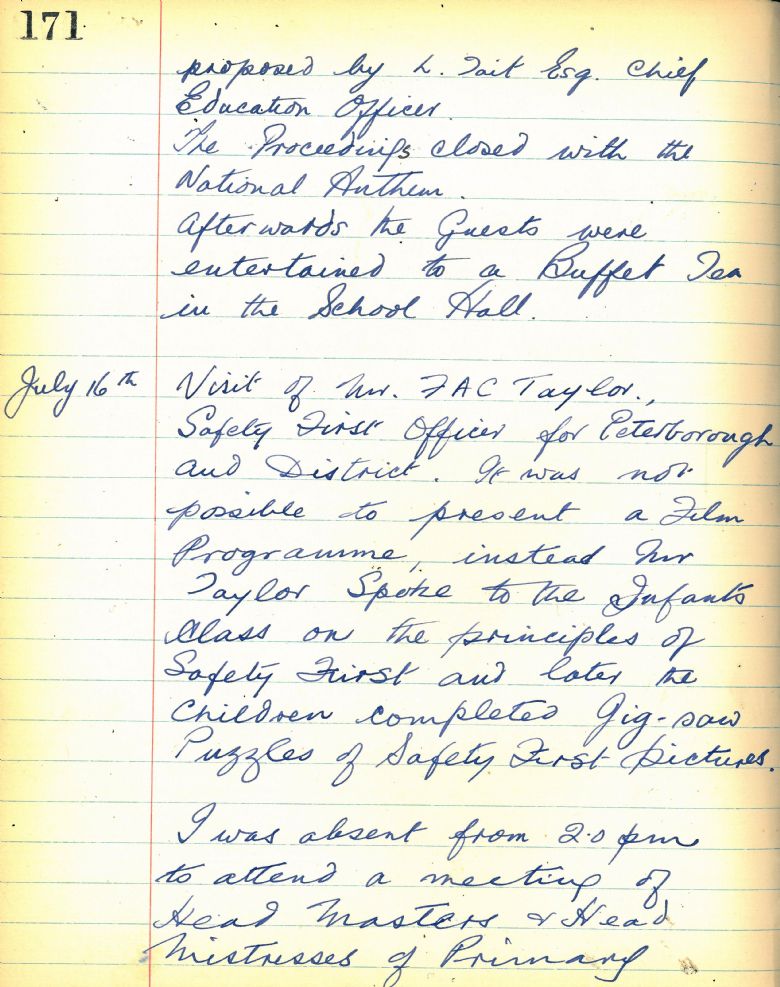 171
proposed by L. Tait Esq. Chief
Education Officer.
The Proceedings closed with the
National Anthem.
Afterwards the Guests were
entertained to a Buffet Tea
in the School Hall.
July 16th Visit of Mr. FAC Taylor.,
Safety First Officer for Peterborough
and District. It was not
possible to present a Film
Programme, instead Mr
Taylor Spoke to the Infants
Class on the principles of
Safety First and later the
Children completed Gig-saw
Puzzles of Safety First pictures.
I was absent from 2.0 pm
to attend a meeting of
Head Masters & Head
Mistresses of Primary